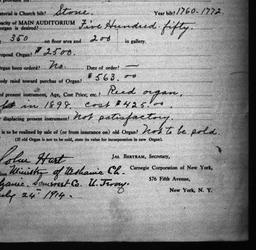 aterial is Church bilt? Stone. Year bilt? 1760-1772.
pacity of MAIN AUDITORIUM Five Hundred fifty.
organ is desired?
350 on floor area and 200 in gallery.
roposed Organ? $2500.
organ been ordered? No. Date of order? —
ready raised toward purchase of Organ? $563.00
present instrument, Age, Cost Price, etc.? Reed organ,
in 1898. cost $425.00.
displacing present instrument? Not satisfactory.
is to be realized by sale of (or from insurance on) old Organ? Not to be sold.
(If old Organ is not to be sold, state its value for incorporation in new Organ).
John Hurst
Jas Bertram, Secretary,
Ministry of Methanie Ch.
Carnegie Corporation of New York,
576 Fifth Avenue,
New York, N. Y.
July 24th 1914.